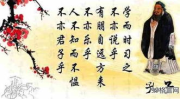 学而时习之
不亦说乎
有朋自远方来
不亦乐乎
人不知而不愠
不亦君子乎